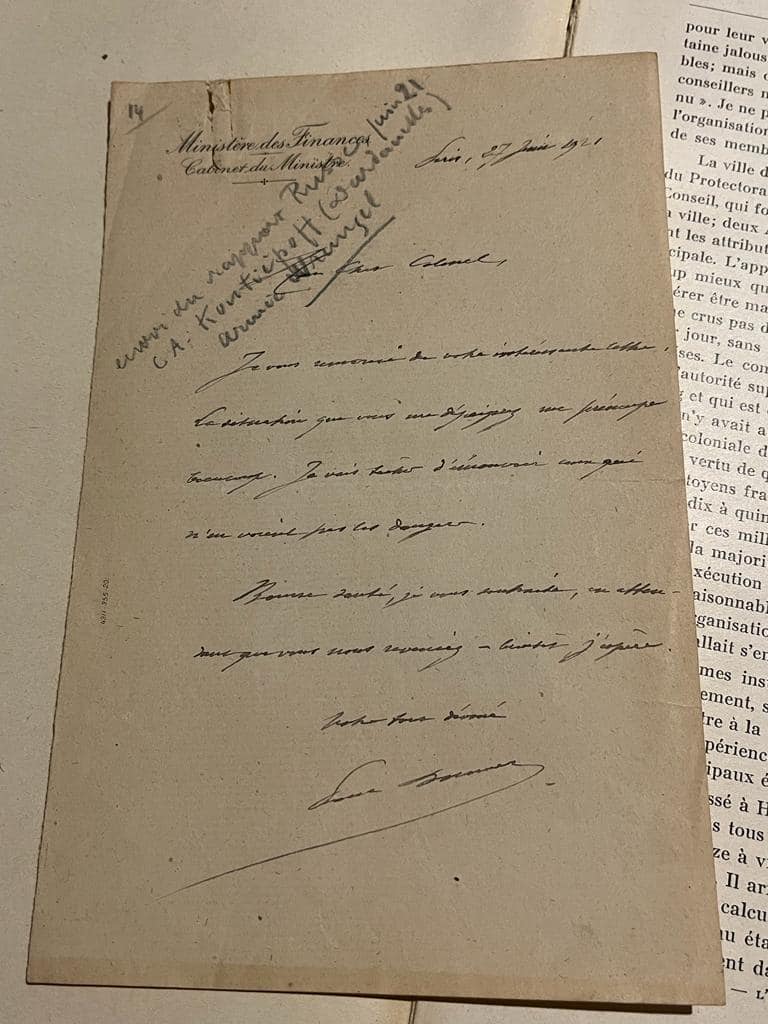 14
Ministère des Finances
Cabinet du Ministre
Paris, 27 Juin 1921
envoi du rapport Russe Juin 21
C.A. Kontiépoff (Dardanelles)
armée Wrangel
Mon Cher Colonel,
Je vous remercie de votre intéressante lettre.
La situation que vous me dépeignez me préoccupe
beaucoup. Je vais tâcher d'émouvoir ceux qui
n'en voient pas les dangers.
Bonne santé, je vous souhaite, en atten-
dant que vous nous reveniez – bientôt j'espère.
Votre tout dévoué
Paul Doumer
pour leur v
taine jalous
bles; mais
conseillers n
nu ». Je ne p
l'organisation
de ses memb
La ville d
du Protectora
Conseil, qui fo
ville; deux
nt les attribut
cipale. L'app
up mieux qu
érer être ma
ne crus pas d
jour, sans
ses. Le con
'autorité sup
et qui est
n'y avait a
coloniale d
vertu de q
toyens fra
dix à quin
r ces mill
la majori
xécution
aisonnabl
rganisatio
allait s'en
mes ins
ement, s
tre à la
périenc
ipaux é
ssé à H
s tous
ze à v
Il ar
calcu
au éta
ent da
— L'